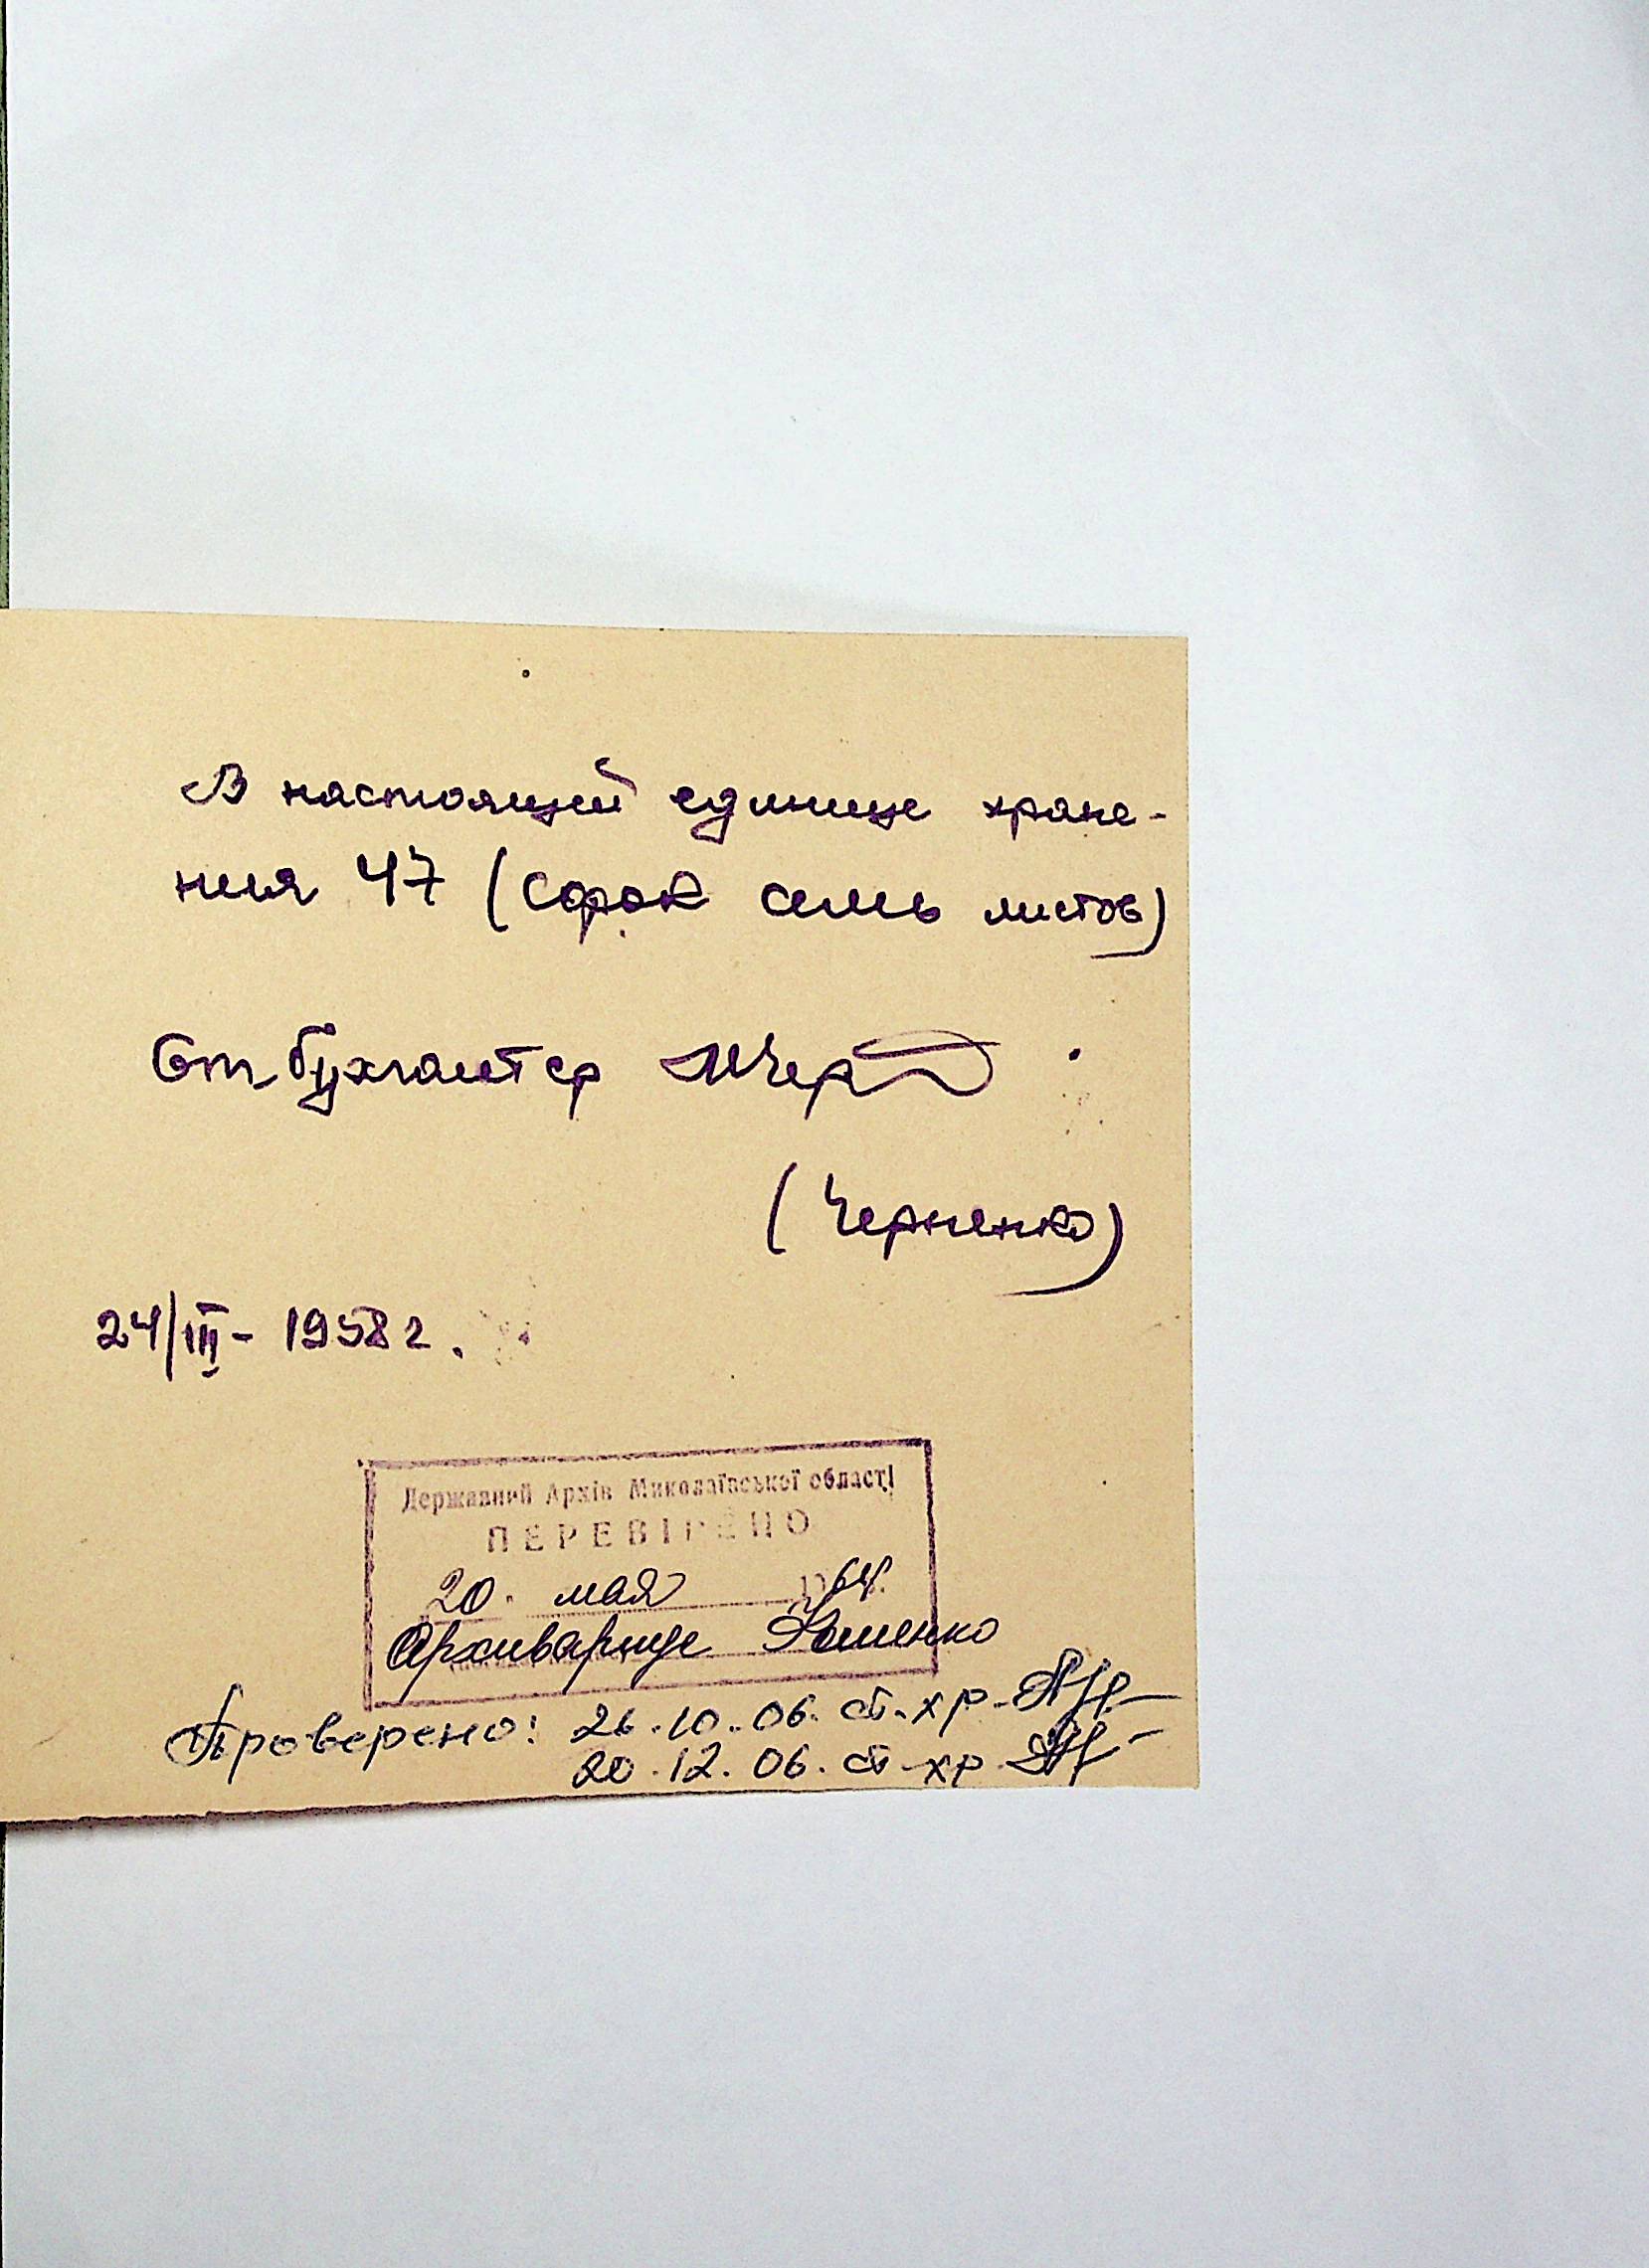 В настоящей единице хране-
ния 47 (сорок семь листов)
Ст. бухгалтер
(Черненко)
24/III - 1958 г.
Державний Архів Миколаївської області
ПЕРЕВІРЕНО
20. мая 1964.
Проверено: 26.10.06. ст. хр.
20.12.06. ст. хр.